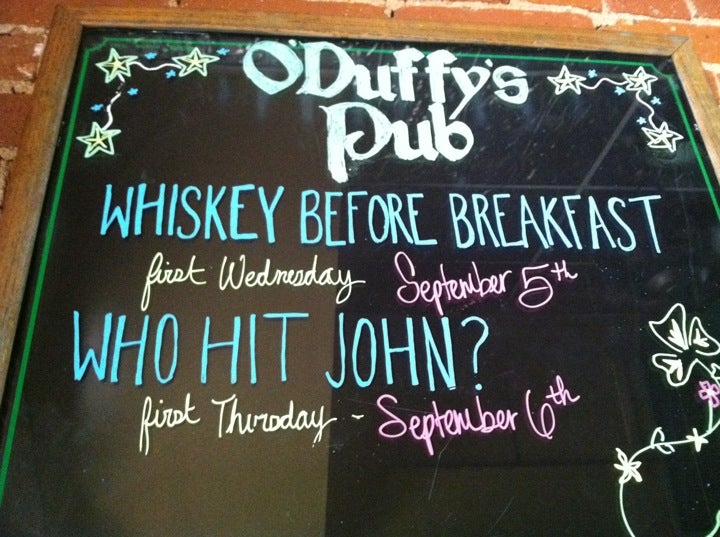 O'Duffy's
Pub
WHISKEY BEFORE BREAKFAST
first Wednesday September 5th
WHO HIT JOHN?
first Thursday - September 6th